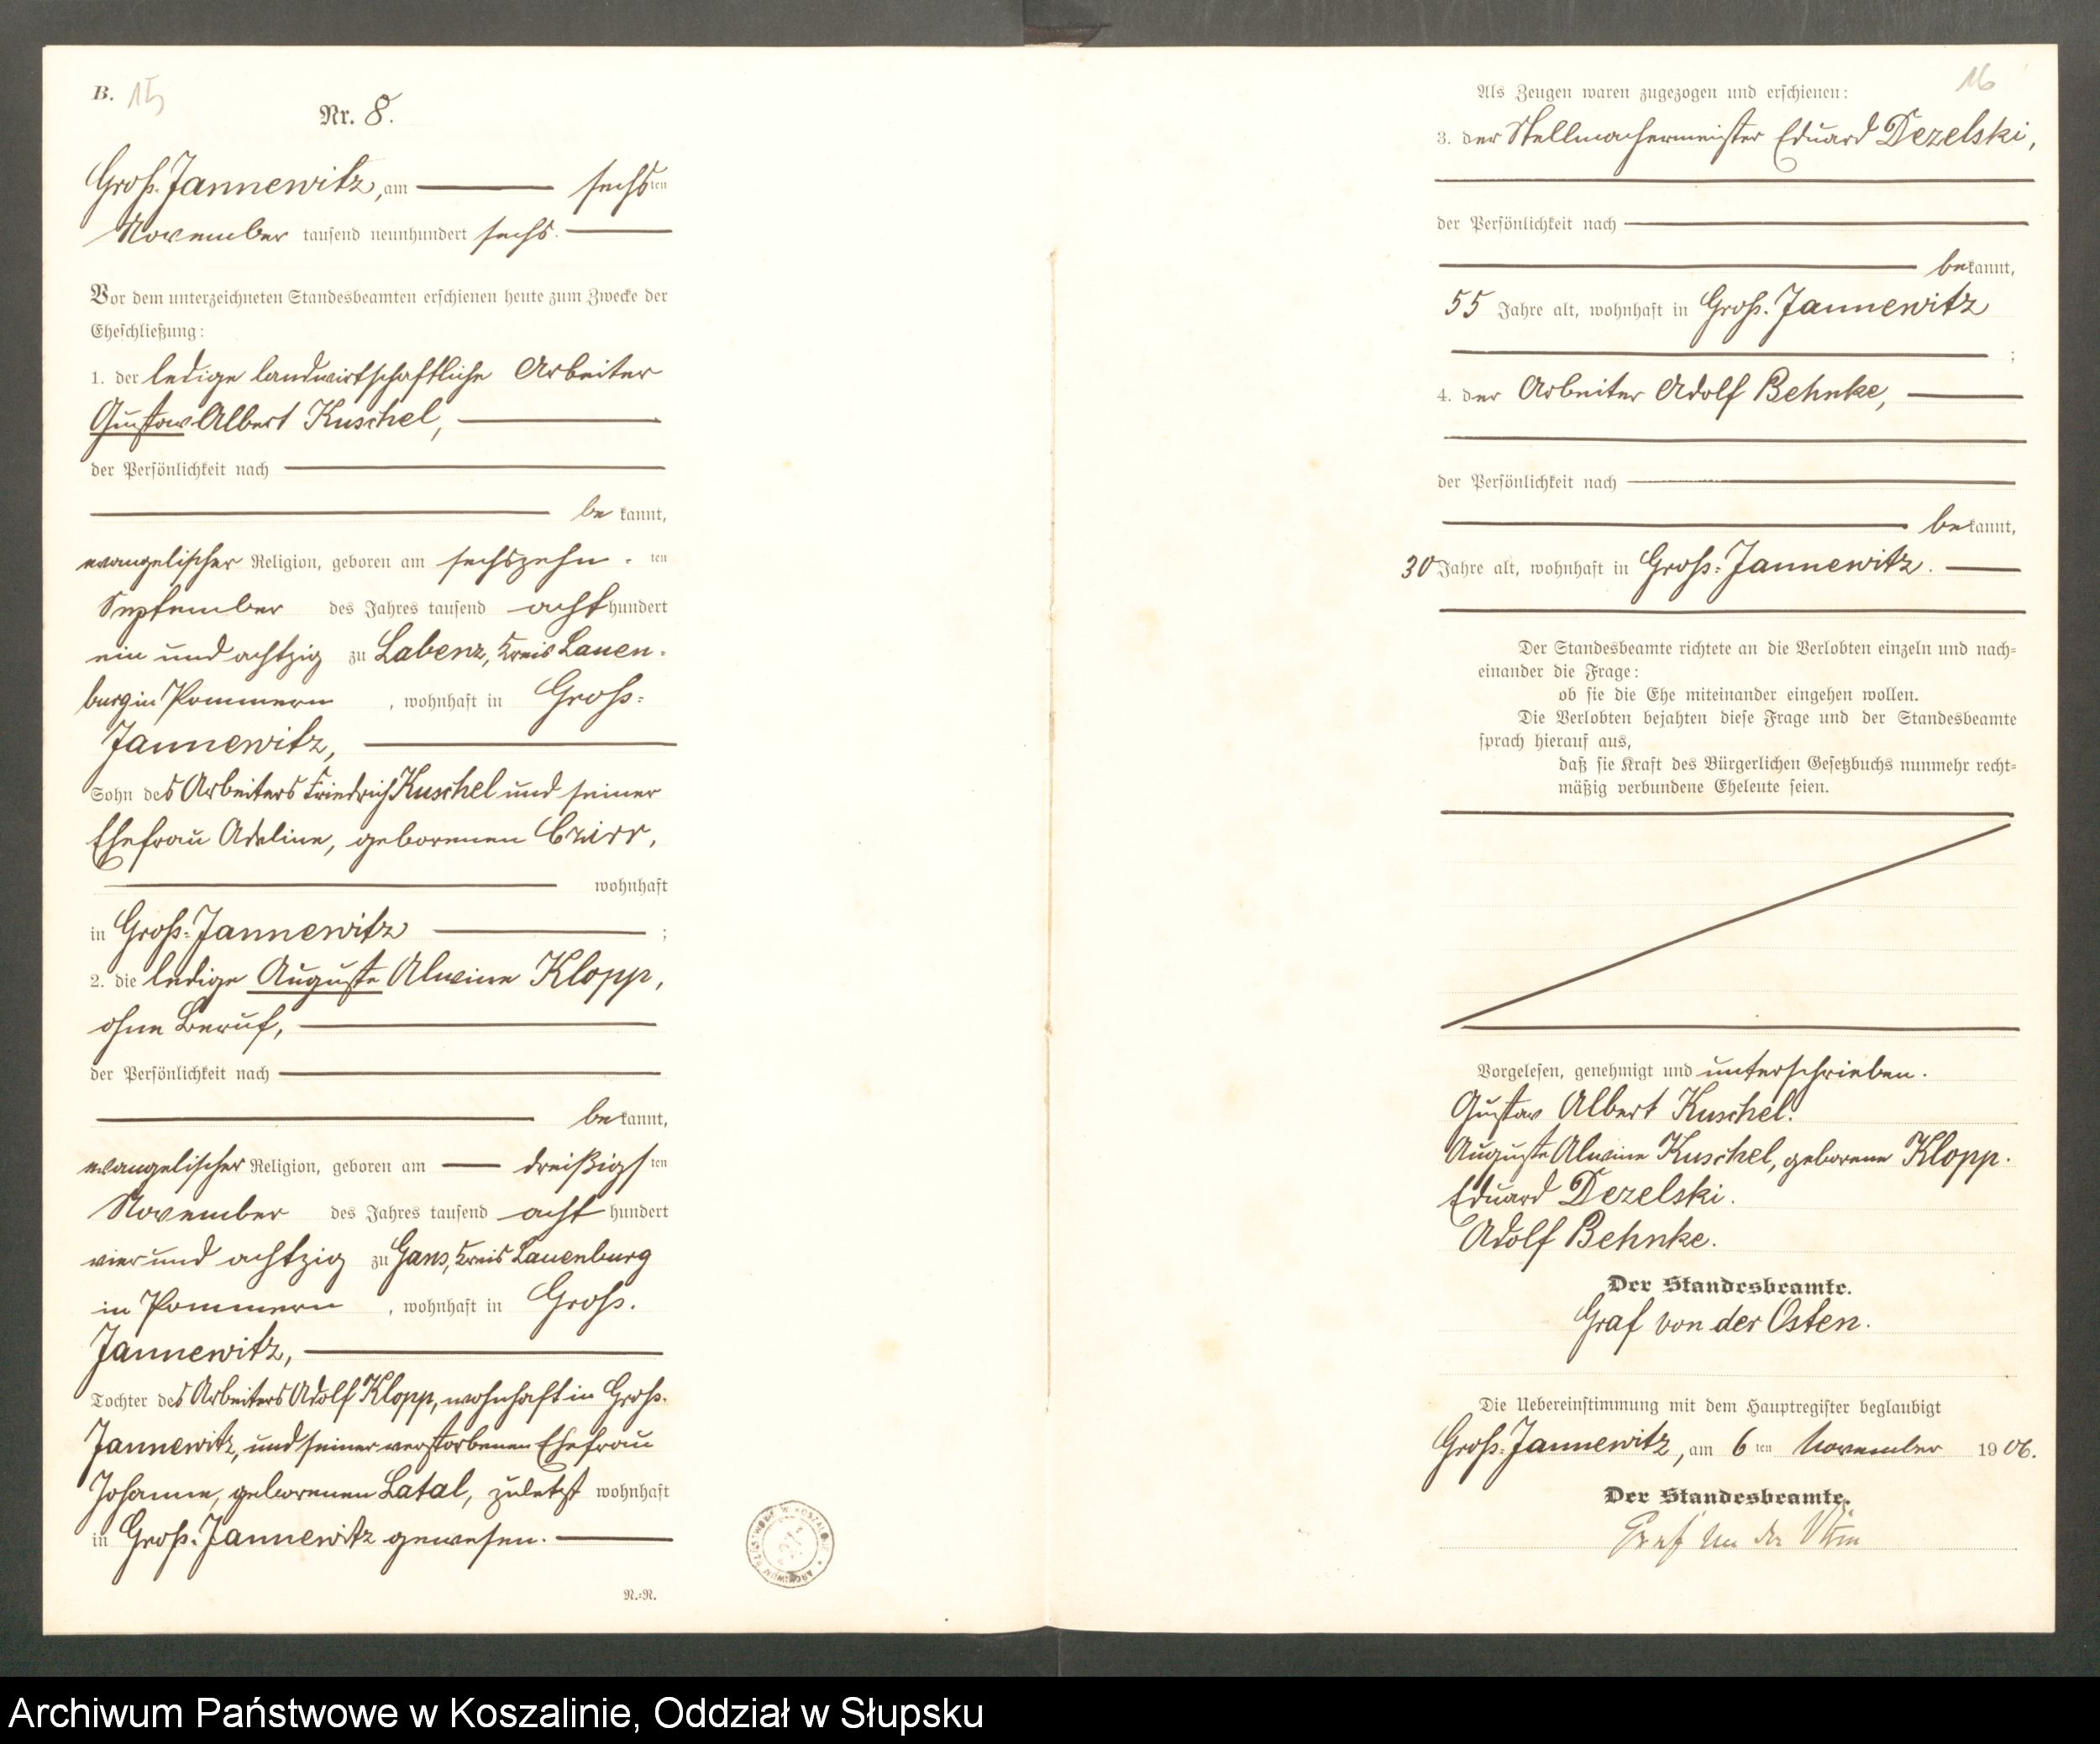 B. 15
Nr. 8.
Groß-Jannewitz, am sechsten
November tausend neunhundert sechs.
Vor dem unterzeichneten Standesbeamten erschienen heute zum Zwecke der
Eheschließung:
1. der ledige landwirtschaftliche Arbeiter
Gustav Albert Kuschel,
der Persönlichkeit nach
bekannt,
evangelischer Religion, geboren am sechszehn-ten
September des Jahres tausend achthundert
ein und achtzig zu Labenz, Kreis Lauen-
burg in Pommern, wohnhaft in Groß-
Jannewitz,
Sohn des Arbeiters Friedrich Kuschel und seiner
Ehefrau Adeline, geborenen Czirr,
wohnhaft
in Groß-Jannewitz ;
2. die ledige Auguste Alwine Klopp,
ohne Beruf,
der Persönlichkeit nach
bekannt,
evangelischer Religion, geboren am dreißigsten
November des Jahres tausend acht hundert
vier und achtzig zu Gans, Kreis Lauenburg
in Pommern, wohnhaft in Groß-
Jannewitz,
Tochter des Arbeiters Adolf Klopp, wohnhaft in Groß-
Jannewitz, und seiner verstorbenen Ehefrau
Johanne, geborenen Latal, zuletzt wohnhaft
in Groß-Jannewitz gewesen.
N.-N.
16
Als Zeugen waren zugezogen und erschienen:
3. der Stellmachermeister Eduard Dezelski,
der Persönlichkeit nach
bekannt,
55 Jahre alt, wohnhaft in Groß-Jannewitz
;
4. der Arbeiter Adolf Behnke,
der Persönlichkeit nach
bekannt,
30 Jahre alt, wohnhaft in Groß-Jannewitz.
Der Standesbeamte richtete an die Verlobten einzeln und nach-
einander die Frage:
ob sie die Ehe miteinander eingehen wollen.
Die Verlobten bejahten diese Frage und der Standesbeamte
sprach hierauf aus,
daß sie Kraft des Bürgerlichen Gesetzbuchs nunmehr recht-
mäßig verbundene Eheleute seien.
Vorgelesen, genehmigt und unterschrieben.
Gustav Albert Kuschel.
Auguste Alwine Kuschel, geborene Klopp.
Eduard Dezelski.
Adolf Behnke.
Der Standesbeamte.
Graf von der Osten.
Die Uebereinstimmung mit dem Hauptregister beglaubigt
Groß-Jannewitz, am 6ten November 1906.
Der Standesbeamte.
Graf von der Osten
Archiwum Państwowe w Koszalinie, Oddział w Słupsku